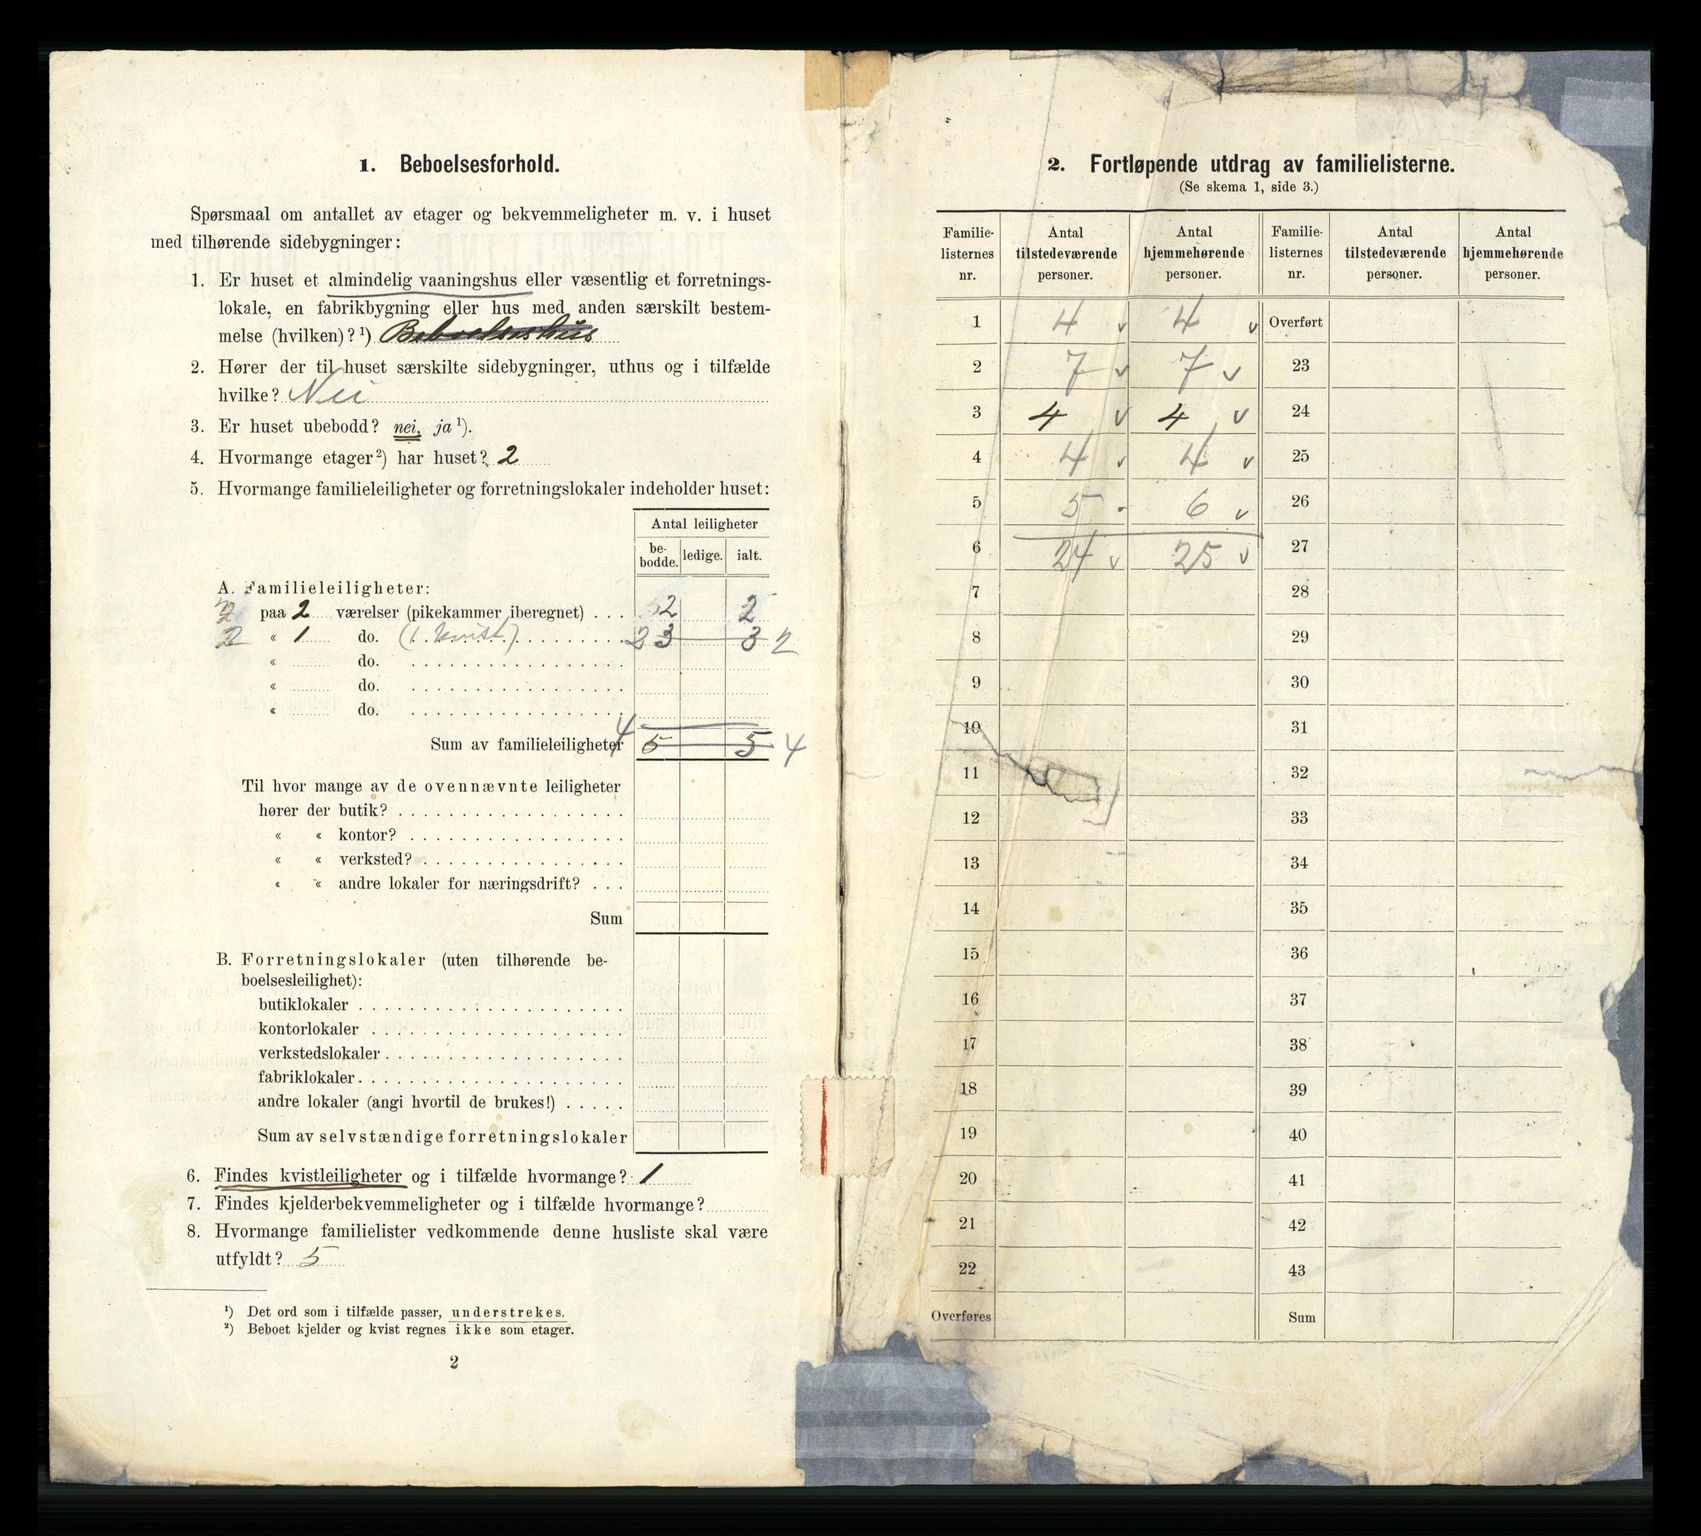 1. Beboelsesforhold.
Spørsmaal om antallet av etager og bekvemmeligheter m. v. i huset
med tilhørende sidebygninger:
1. Er huset et almindelig vaaningshus eller væsentlig et forretnings-
lokale, en fabrikbygning eller hus med anden særskilt bestem-
melse (hvilken)? ¹) Beboelseshus
2. Hører der til huset særskilte sidebygninger, uthus og i tilfælde
hvilke? Nei
3. Er huset ubebodd? nei, ja ¹).
4. Hvormange etager ²) har huset? 2
5. Hvormange familieleiligheter og forretningslokaler indeholder huset:
Antal leiligheter
be-bodde. ledige. ialt.
A. Familieleiligheter:
2 paa 2 værelser (pikekammer iberegnet) . . . 2 2
2 « 1 do. (1 kvist) . . . . . . . . 2 3 3 2
« do. . . . . . . . . . . . . . . . .
« do. . . . . . . . . . . . . . . . .
« do. . . . . . . . . . . . . . . . .
Sum av familieleiligheter 4 5 5 4
Til hvor mange av de ovennævnte leiligheter
hører der butik? . . . . . . . . . . . . . . . . . .
« « kontor? . . . . . . . . . . . . . . . . .
« « verksted? . . . . . . . . . . . . . . . .
« « andre lokaler for næringsdrift? . . .
Sum
B. Forretningslokaler (uten tilhørende be-
boelsesleilighet):
butiklokaler . . . . . . . . . . . . . . . . . . . . .
kontorlokaler . . . . . . . . . . . . . . . . . . . .
verkstedslokaler . . . . . . . . . . . . . . . . . . .
fabriklokaler . . . . . . . . . . . . . . . . . . . . .
andre lokaler (angi hvortil de brukes!) . . . . .
Sum av selvstændige forretningslokaler
6. Findes kvistleiligheter og i tilfælde hvormange? 1
7. Findes kjelderbekvemmeligheter og i tilfælde hvormange?
8. Hvormange familielister vedkommende denne husliste skal være
utfyldt? 5
¹) Det ord som i tilfælde passer, understrekes.
²) Beboet kjelder og kvist regnes ikke som etager.
2
2. Fortløpende utdrag av familielisterne.
(Se skema 1, side 3.)
Familie- Antal Antal Familie- Antal Antal
listernes tilstedeværende hjemmehørende listernes tilstedeværende hjemmehørende
nr. personer. personer. nr. personer. personer.
1 4 v 4 v Overført
2 7 v 7 v 23
3 4 v 4 v 24
4 4 v 4 v 25
5 5 - 6 v 26
6 24 v 25 v 27
7 28
8 29
9 30
10 31
11 32
12 33
13 34
14 35
15 36
16 37
17 38
18 39
19 40
20 41
21 42
22 43
Overføres Sum